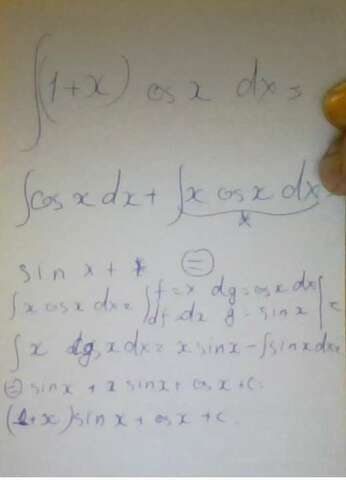 ∫(1+x) cos x dx =
∫cos x dx + ∫x cos x dx
*
sin x + * ⊜
∫x cos x dx = |f = x dg = cos x dx
df dx g = sin x| =
∫ x dg x dx = x sin x - ∫sin x dx =
⊜ sin x + x sin x + cos x + c
(1+x) sin x + cos x + c.